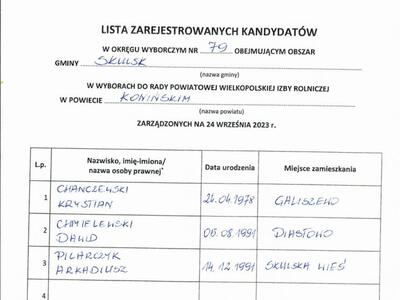 LISTA ZAREJESTROWANYCH KANDYDATÓW
W OKRĘGU WYBORCZYM NR 79 OBEJMUJĄCYM OBSZAR
GMINY SKULSK
(nazwa gminy)
W WYBORACH DO RADY POWIATOWEJ WIELKOPOLSKIEJ IZBY ROLNICZEJ
W POWIECIE KONIŃSKIM
(nazwa powiatu)
ZARZĄDZONYCH NA 24 WRZEŚNIA 2023 r.
L.p. Nazwisko, imię-imiona/ nazwa osoby prawnej* Data urodzenia Miejsce zamieszkania
1 CHANCZEWSKI KRYSTIAN 24.04.1978 GALISZEWO
2 CHMIELEWSKI DAWID 06.08.1991 DIASTOWO
3 PILARCZYK ARKADIUSZ 14.12.1991 SKULSKA WIEŚ